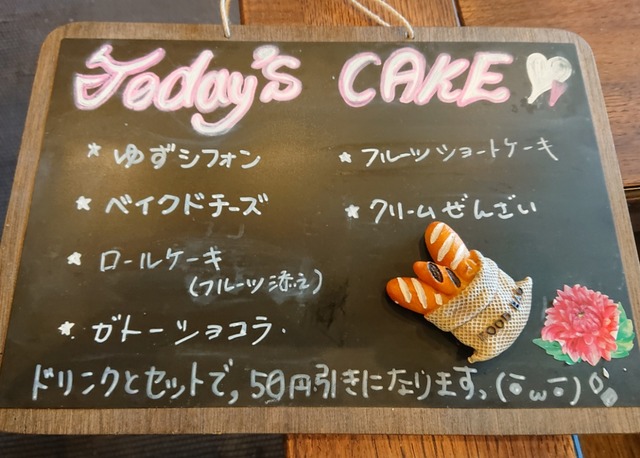 Today's CAKE
* ゆずシフォン
* ベイクドチーズ
* ロールケーキ
(フルーツ添え)
* ガトーショコラ.
* フルーツショートケーキ
* クリームぜんざい
ドリンクとセットで,50円引きになります。